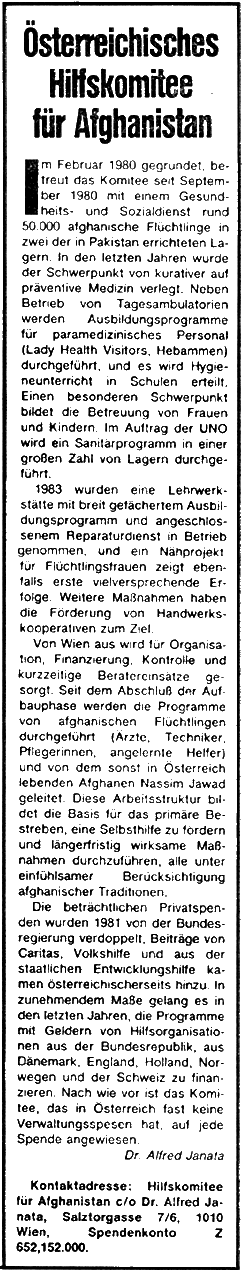 Österreichisches
Hilfskomitee
für Afghanistan
Im Februar 1980 gegründet, be-
treut das Komitee seit Septem-
ber 1980 mit einem Gesund-
heits- und Sozialdienst rund
50.000 afghanische Flüchtlinge in
zwei der in Pakistan errichteten La-
gern. In den letzten Jahren wurde
der Schwerpunkt von kurativer auf
präventive Medizin verlegt. Neben
Betrieb von Tagesambulatorien
werden Ausbildungsprogramme
für paramedizinisches Personal
(Lady Health Visitors, Hebammen)
durchgeführt, und es wird Hygie-
neunterricht in Schulen erteilt.
Einen besonderen Schwerpunkt
bildet die Betreuung von Frauen
und Kindern. Im Auftrag der UNO
wird ein Sanitärprogramm in einer
großen Zahl von Lagern durchge-
führt.
1983 wurden eine Lehrwerk-
stätte mit breit gefächertem Ausbil-
dungsprogramm und angeschlos-
senem Reparaturdienst in Betrieb
genommen, und ein Nähprojekt
für Flüchtlingsfrauen zeigt eben-
falls erste vielversprechende Er-
folge. Weitere Maßnahmen haben
die Förderung von Handwerks-
kooperativen zum Ziel.
Von Wien aus wird für Organisa-
tion, Finanzierung, Kontrolle und
kurzzeitige Beratereinsätze ge-
sorgt. Seit dem Abschluß der Auf-
bauphase werden die Programme
von afghanischen Flüchtlingen
durchgeführt (Ärzte, Techniker,
Pflegerinnen, angelernte Helfer)
und von dem sonst in Österreich
lebenden Afghanen Nassim Jawad
geleitet. Diese Arbeitsstruktur bil-
det die Basis für das primäre Be-
streben, eine Selbsthilfe zu fördern
und längerfristig wirksame Maß-
nahmen durchzuführen, alle unter
einfühlsamer Berücksichtigung
afghanischer Traditionen.
Die beträchtlichen Privatspen-
den wurden 1981 von der Bundes-
regierung verdoppelt, Beiträge von
Caritas, Volkshilfe und aus der
staatlichen Entwicklungshilfe ka-
men österreichischerseits hinzu. In
zunehmendem Maße gelang es in
den letzten Jahren, die Programme
mit Geldern von Hilfsorganisatio-
nen aus der Bundesrepublik, aus
Dänemark, England, Holland, Nor-
wegen und der Schweiz zu finan-
zieren. Nach wie vor ist das Komi-
tee, das in Österreich fast keine
Verwaltungsspesen hat, auf jede
Spende angewiesen.
Dr. Alfred Janata
Kontaktadresse: Hilfskomitee
für Afghanistan c/o Dr. Alfred Ja-
nata, Salztorgasse 7/6, 1010
Wien, Spendenkonto Z
652,152.000.